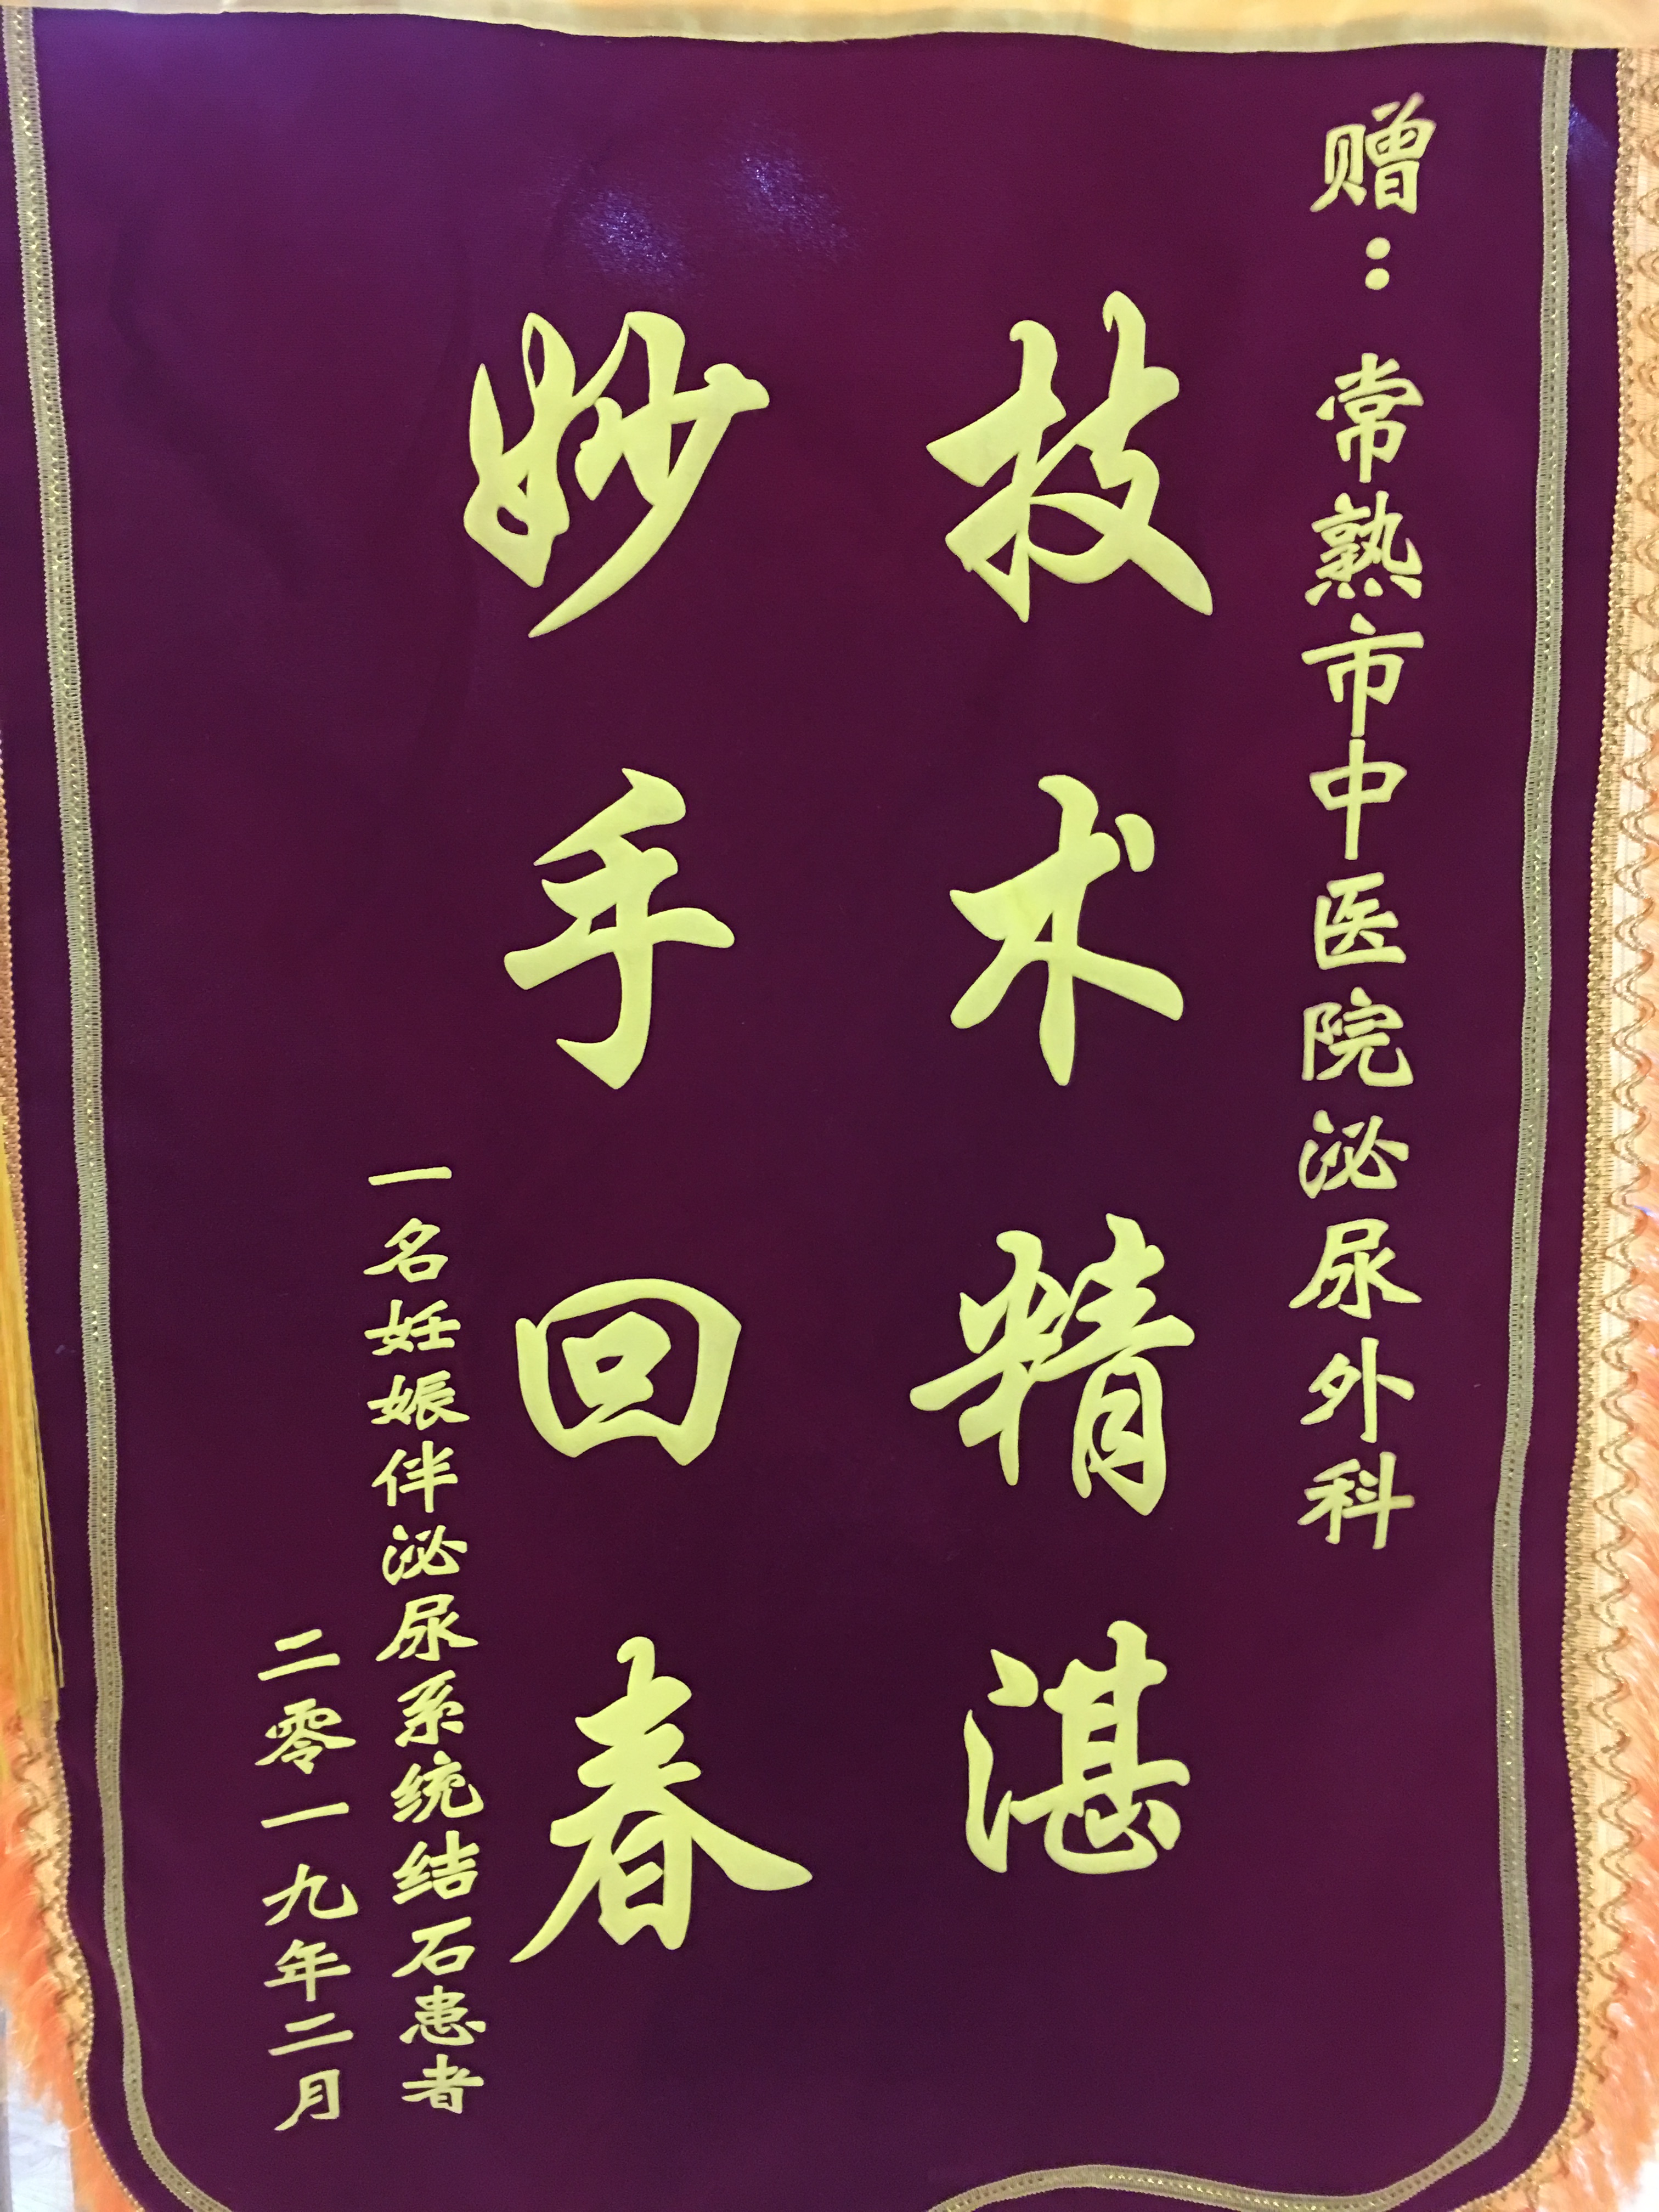 赠：常熟市中医院泌尿外科
技术精湛
妙手回春
一名妊娠伴泌尿系统结石患者
二零一九年二月